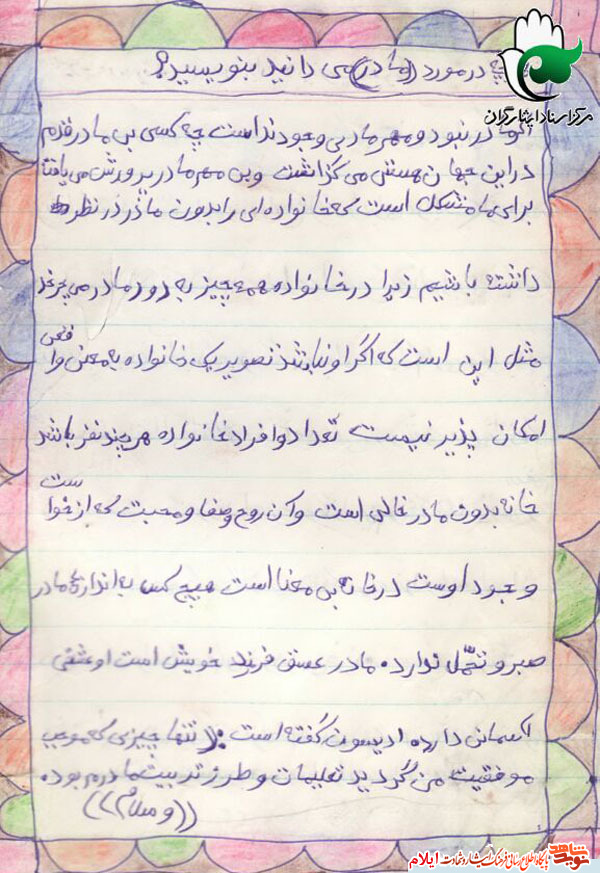 چه در مورد ((مادر)) می دانید بنویسید؟
مرکز اسناد ایثارگران
مادر نبود و مهر مادری وجود نداست چه کسی بی مادر قدم
در این جهان هستی می گذاشت و بی مهر مادر پرورش می یافت
برای ما مشکل است که خانواده ای را بدون مادر در نظر
داشته باشیم زیرا در خانواده همه چیز به دور مادر می چرخد
مثل این است که اگر او نباشد تصویر یک خانواده به معنی واقعی
امکان پذیر نیست تعداد افراد خانواده هر چند نفر باشد
خانه بدون مادر خالی است و آن روح و صفا و محبت که از خواست
وجود اوست در خانه بی معنا است هیچ کس به اندازه مادر
صبر و تحمّل ندارد. مادر عسق فرزند خویش است او عشقی
آسمانی دارد ادیسون گفته است: تنها چیزی که موجب
موفقیت من گردید تعلیمات و طرز تربیت مادرم بود.
((والسلام))
نوید شاهد
پایگاه اطلاع رسانی فرهنگ ایثار و شهادت ایلام